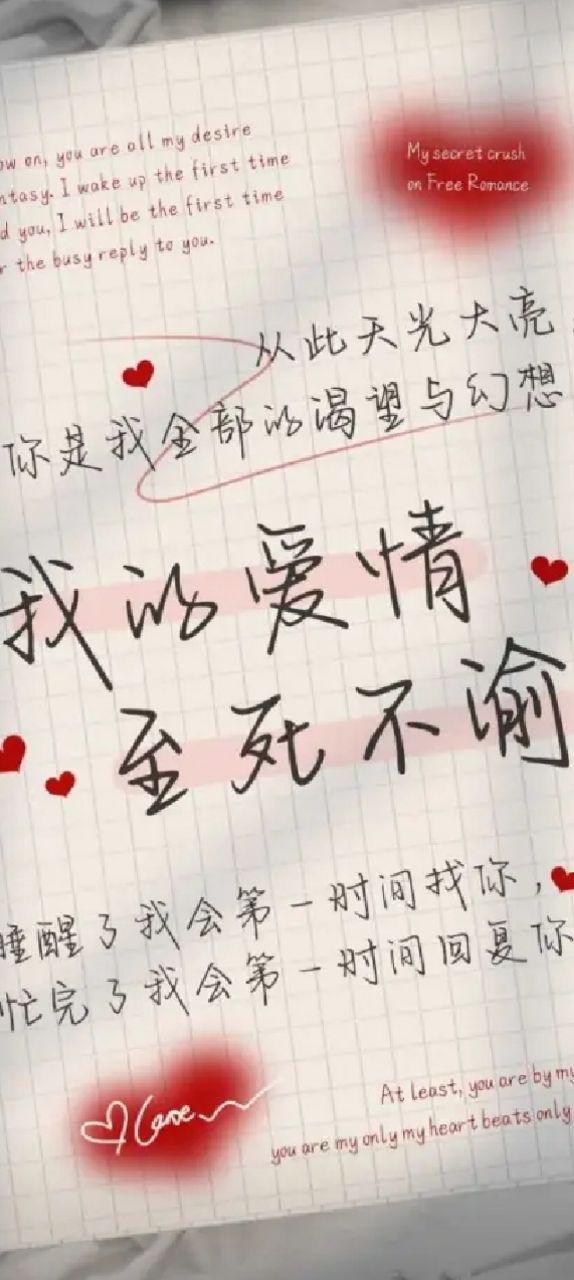 ow on, you are all my desire
ntasy. I wake up the first time
d you, I will be the first time
r the busy reply to you.
My secret crush
on Free Romance
从此天光大亮
你是我全部的渴望与幻想
我的爱情
至死不渝
睡醒了我会第一时间找你，
忙完了我会第一时间回复你
At least, you are by my
you are my only my heart beats only